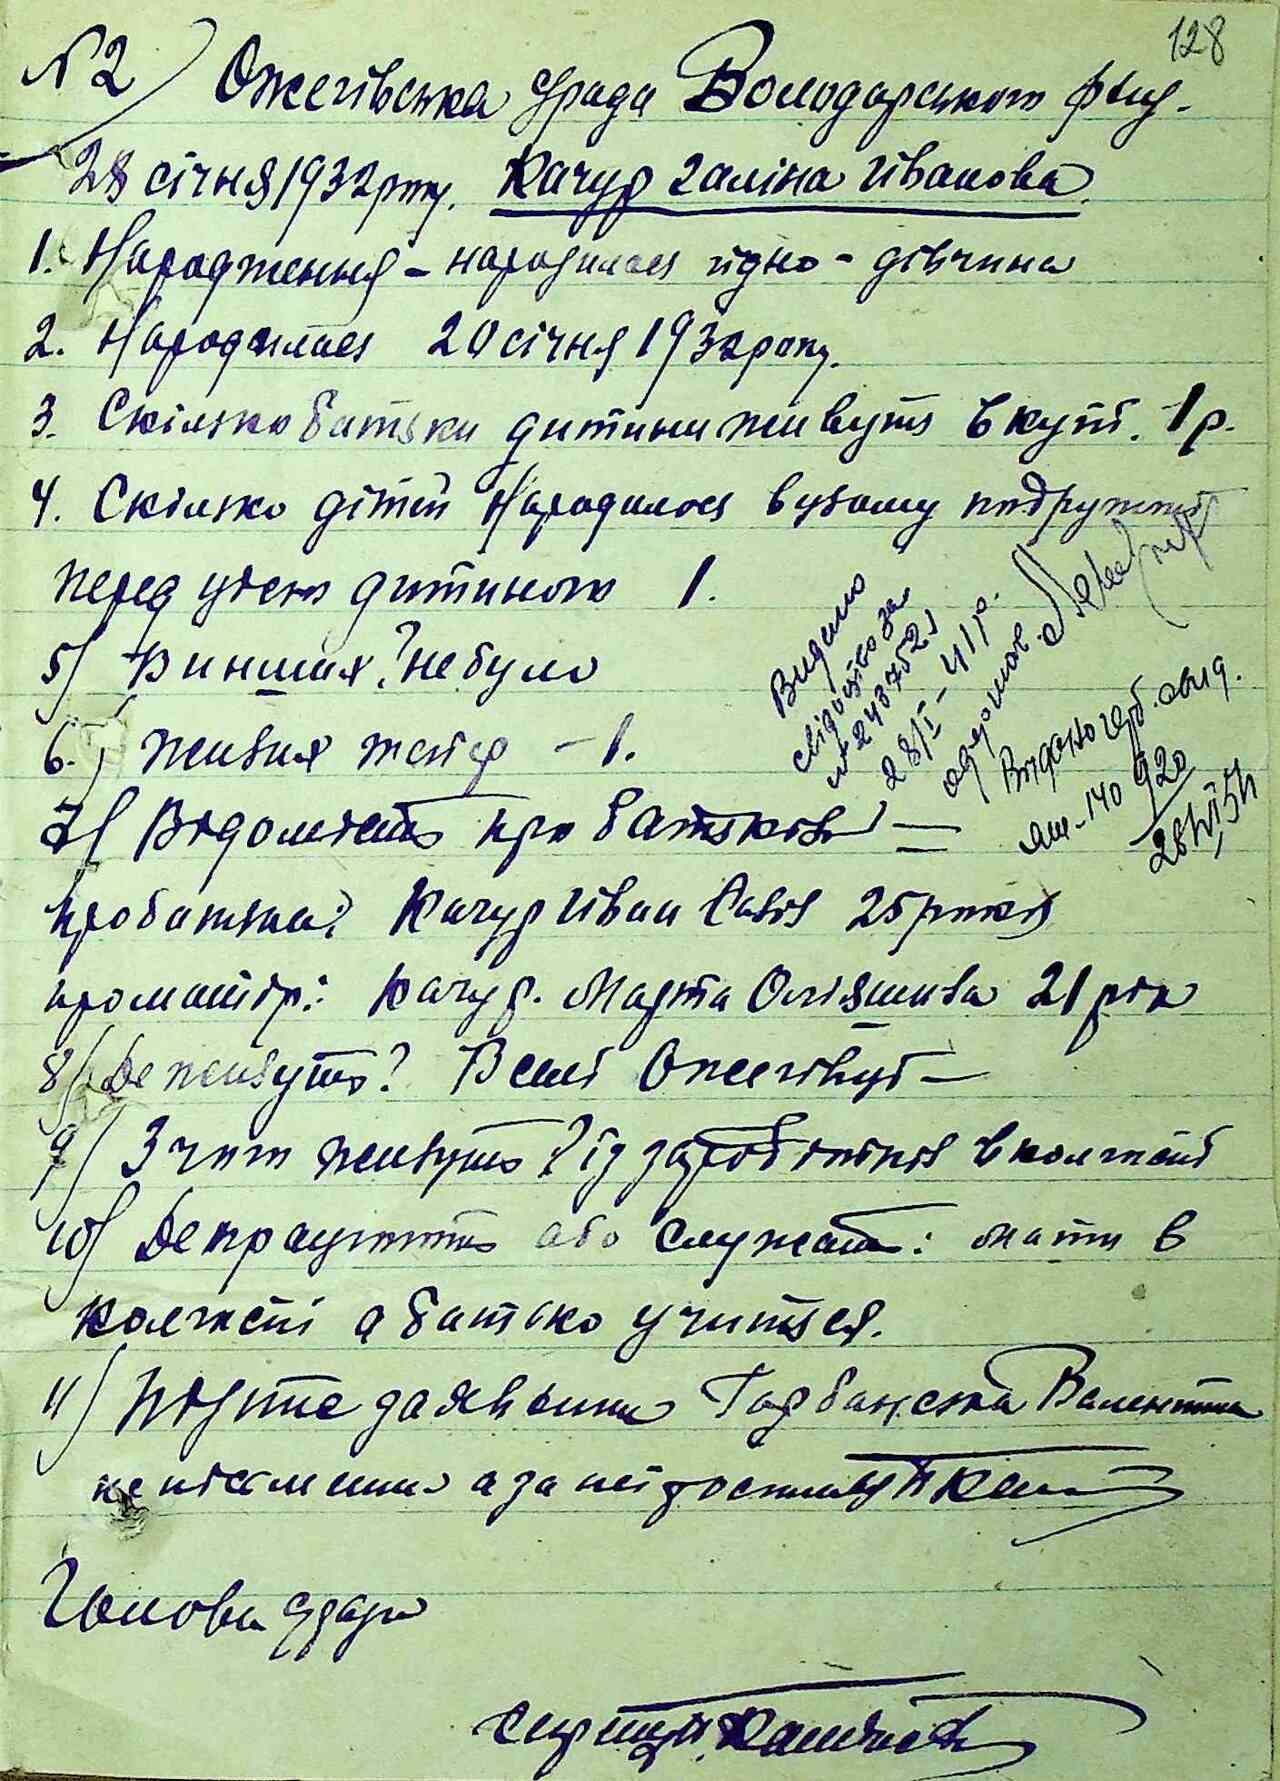 128
№ 2 Ожегівська с/рада Володарського р-ну.
28 січня 1932 року. Качур Галіна Іванова.
1. Народження - народилося їдно - дівчина
2. Народилася 20 січня 1932 року.
3. Скілько батьки дитини живуть в купі. 1 р.
4. Скілько дітей народилося в уьому подружжі
перед уією дитиною 1.
5) В инших? не було
6.) живих тепер - 1.
7) Відомость про батьків -
про батька: Качур Іван Савів 25 років
про матір: Качур. Марта 21 рік
8) Де живуть? В селі Ожегівуі -
9) З чого живуть? із заробітків в колгоспі
10) Де працюють або служать: мати в
колгоспі а батько учиться.
11) Підпис заявника Горбанська Валентина
не пісьмена а за неї росписався
Голова с/ради
Видано
свідоцтво за
№ 2437521
28/I - 41 р.
одержав.
Видано свід.
140 920
28/VII 51